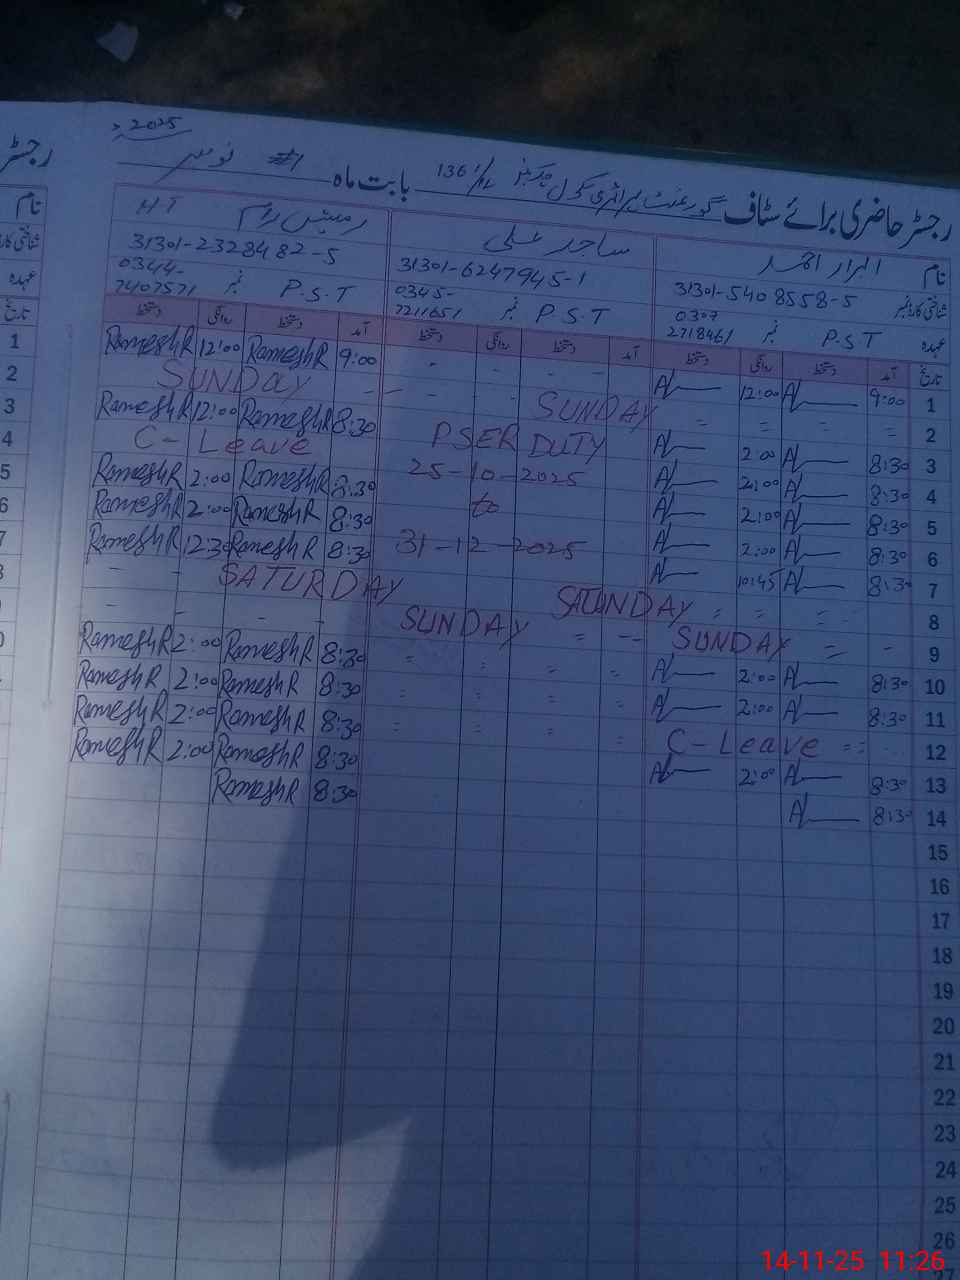 2025
رجسٹر حاضری برائے سٹاف گورنمنٹ پرائمری سکول 136/ بابت ماہ نومبر #1
نام ابرار احمد ساجد علی رمیش رام H T
شناختی کارڈ نمبر 31301-5408558-5 31301-6247945-1 31301-2328482-5
عہدہ P.S.T نمبر 0307 2718461 P.S.T نمبر 0345- 7211651 P.S.T نمبر 0344- 7407571
تاریخ آمد دستخط روانگی دستخط آمد دستخط روانگی دستخط آمد دستخط روانگی دستخط
1 9:00 12:00 - - - - 9:00 RameshR 12:00 RameshR
2 = = = = SUNDAY - - - - SUNDAY
3 8:30 2:00 PSER DUTY 8:30 RameshR 12:00 RameshR
4 8:30 2:00 25-10-2025 C-Leave
5 8:30 2:00 to 8:30 RameshR 2:00 RameshR
6 8:30 2:00 31-12-2025 8:30 RameshR 2:00 RameshR
7 8:30 10:45 8:30 RameshR 12:30 RameshR
8 = = = SATUNDAY SATURDAY - -
9 - = SUNDAY -- = SUNDAY - - - -
10 8:30 2:00 = = = = 8:30 RameshR 2:00 RameshR
11 8:30 2:00 = = = = 8:30 RameshR 2:00 RameshR
12 C-Leave == = = = = 8:30 RameshR 2:00 RameshR
13 8:30 2:00 8:30 RameshR 2:00 RameshR
14 8:30 8:30 RameshR
15
16
17
18
19
20
21
22
23
24
25
26
27
14-11-25 11:26